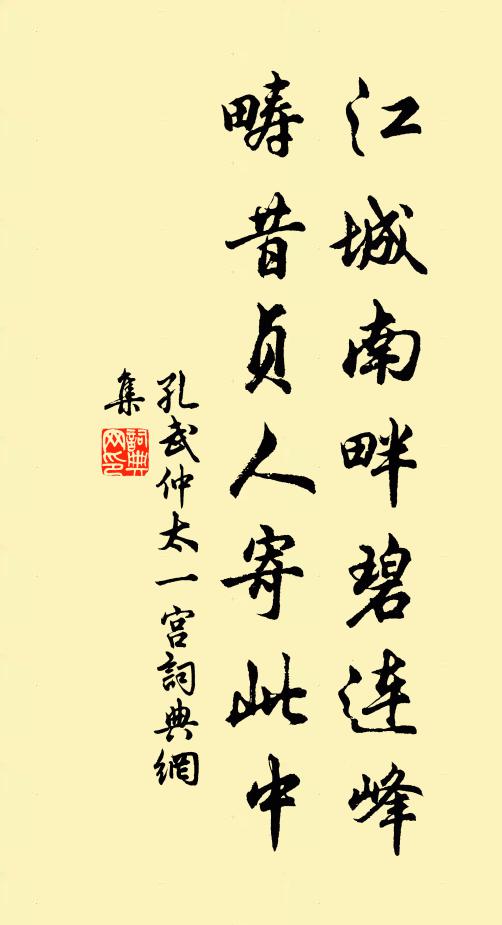 江城南畔碧連峰
疇昔貞人寄此中
孔武仲太一宮詞典網
集
詞典
网印